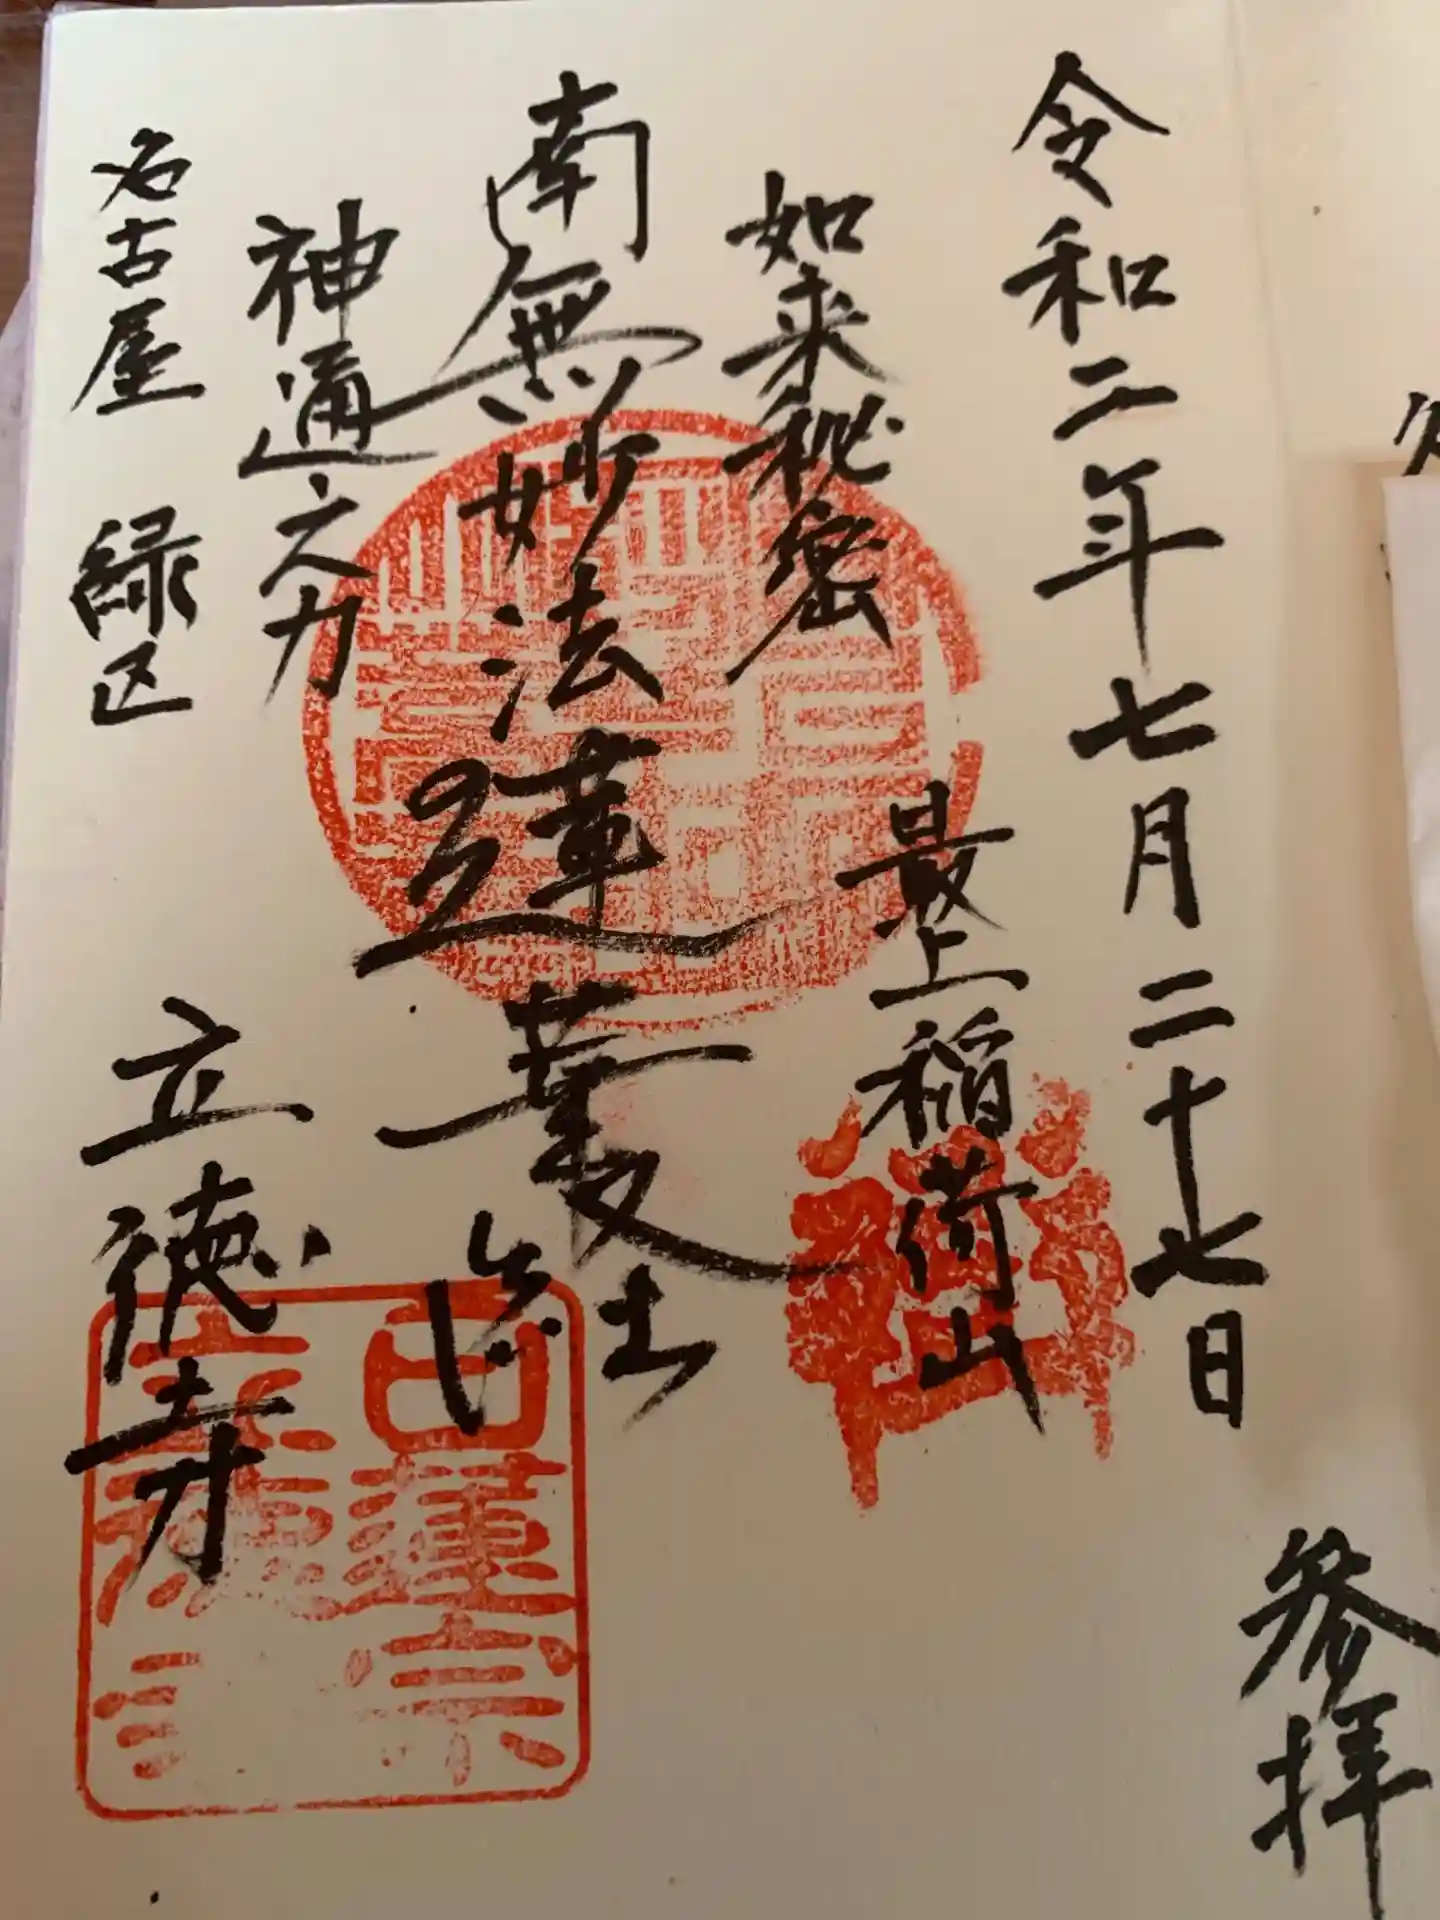 参拝
令和二年七月二十七日
最上稲荷山
如来秘密
南無妙法蓮華経
神通之力
名古屋 緑区
立徳寺
日蓮宗